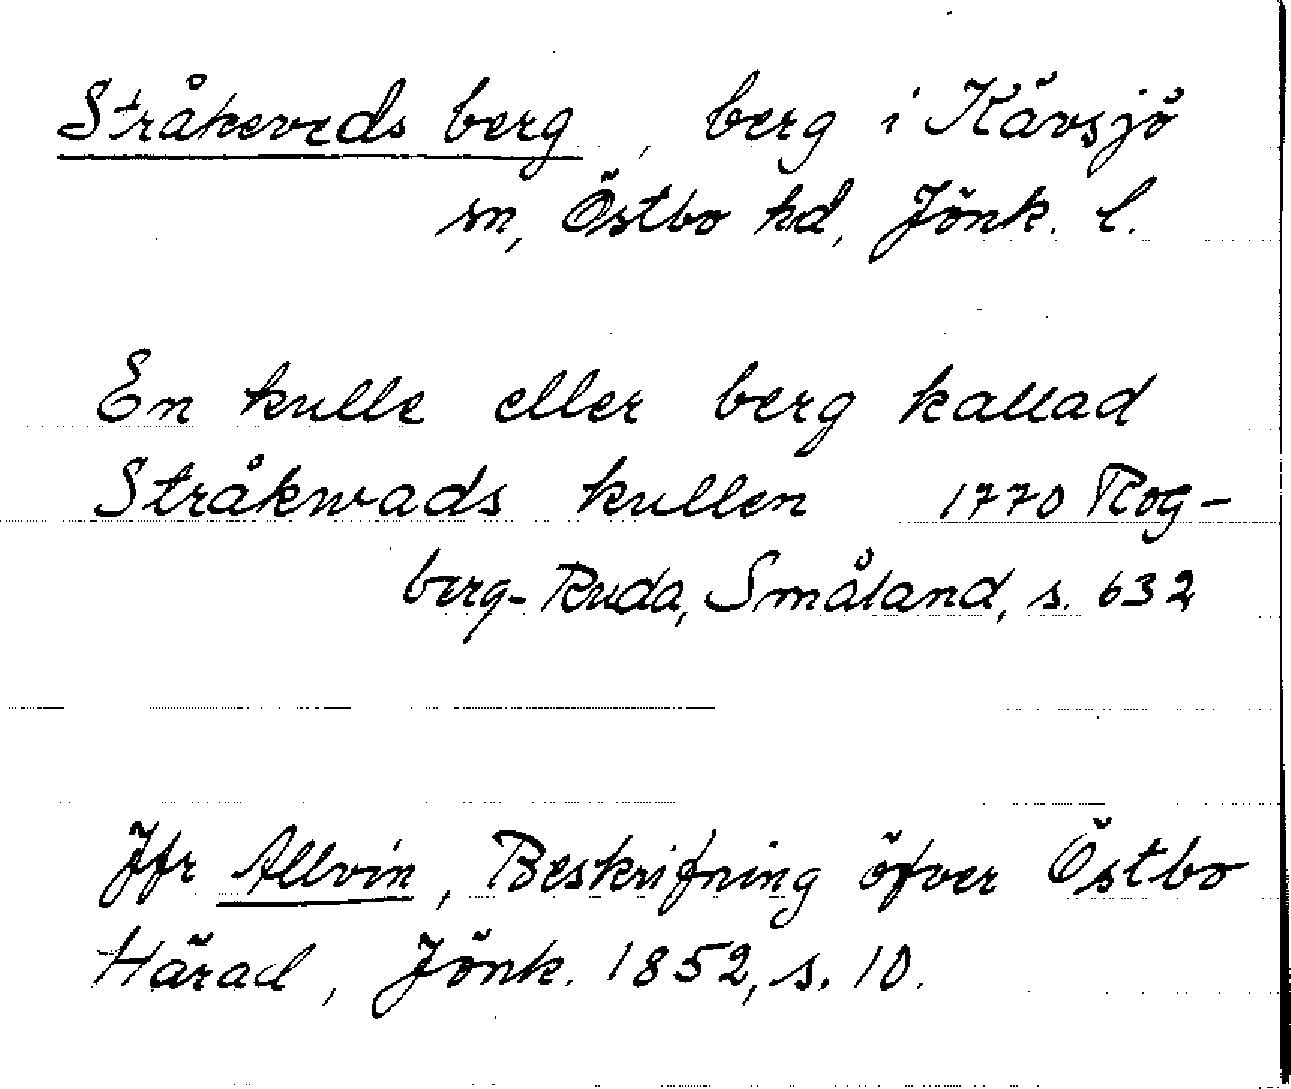 Stråkeveds berg, berg i Kävsjö
sn, Östbo hd, Jönk. l.
En kulle eller berg kallad
Stråkwads kullen 1770 Rog-
berg-Ruda, Småland, s. 632
Jfr Allvin, Beskrifning öfver Östbo
Härad, Jönk. 1852, s. 10.